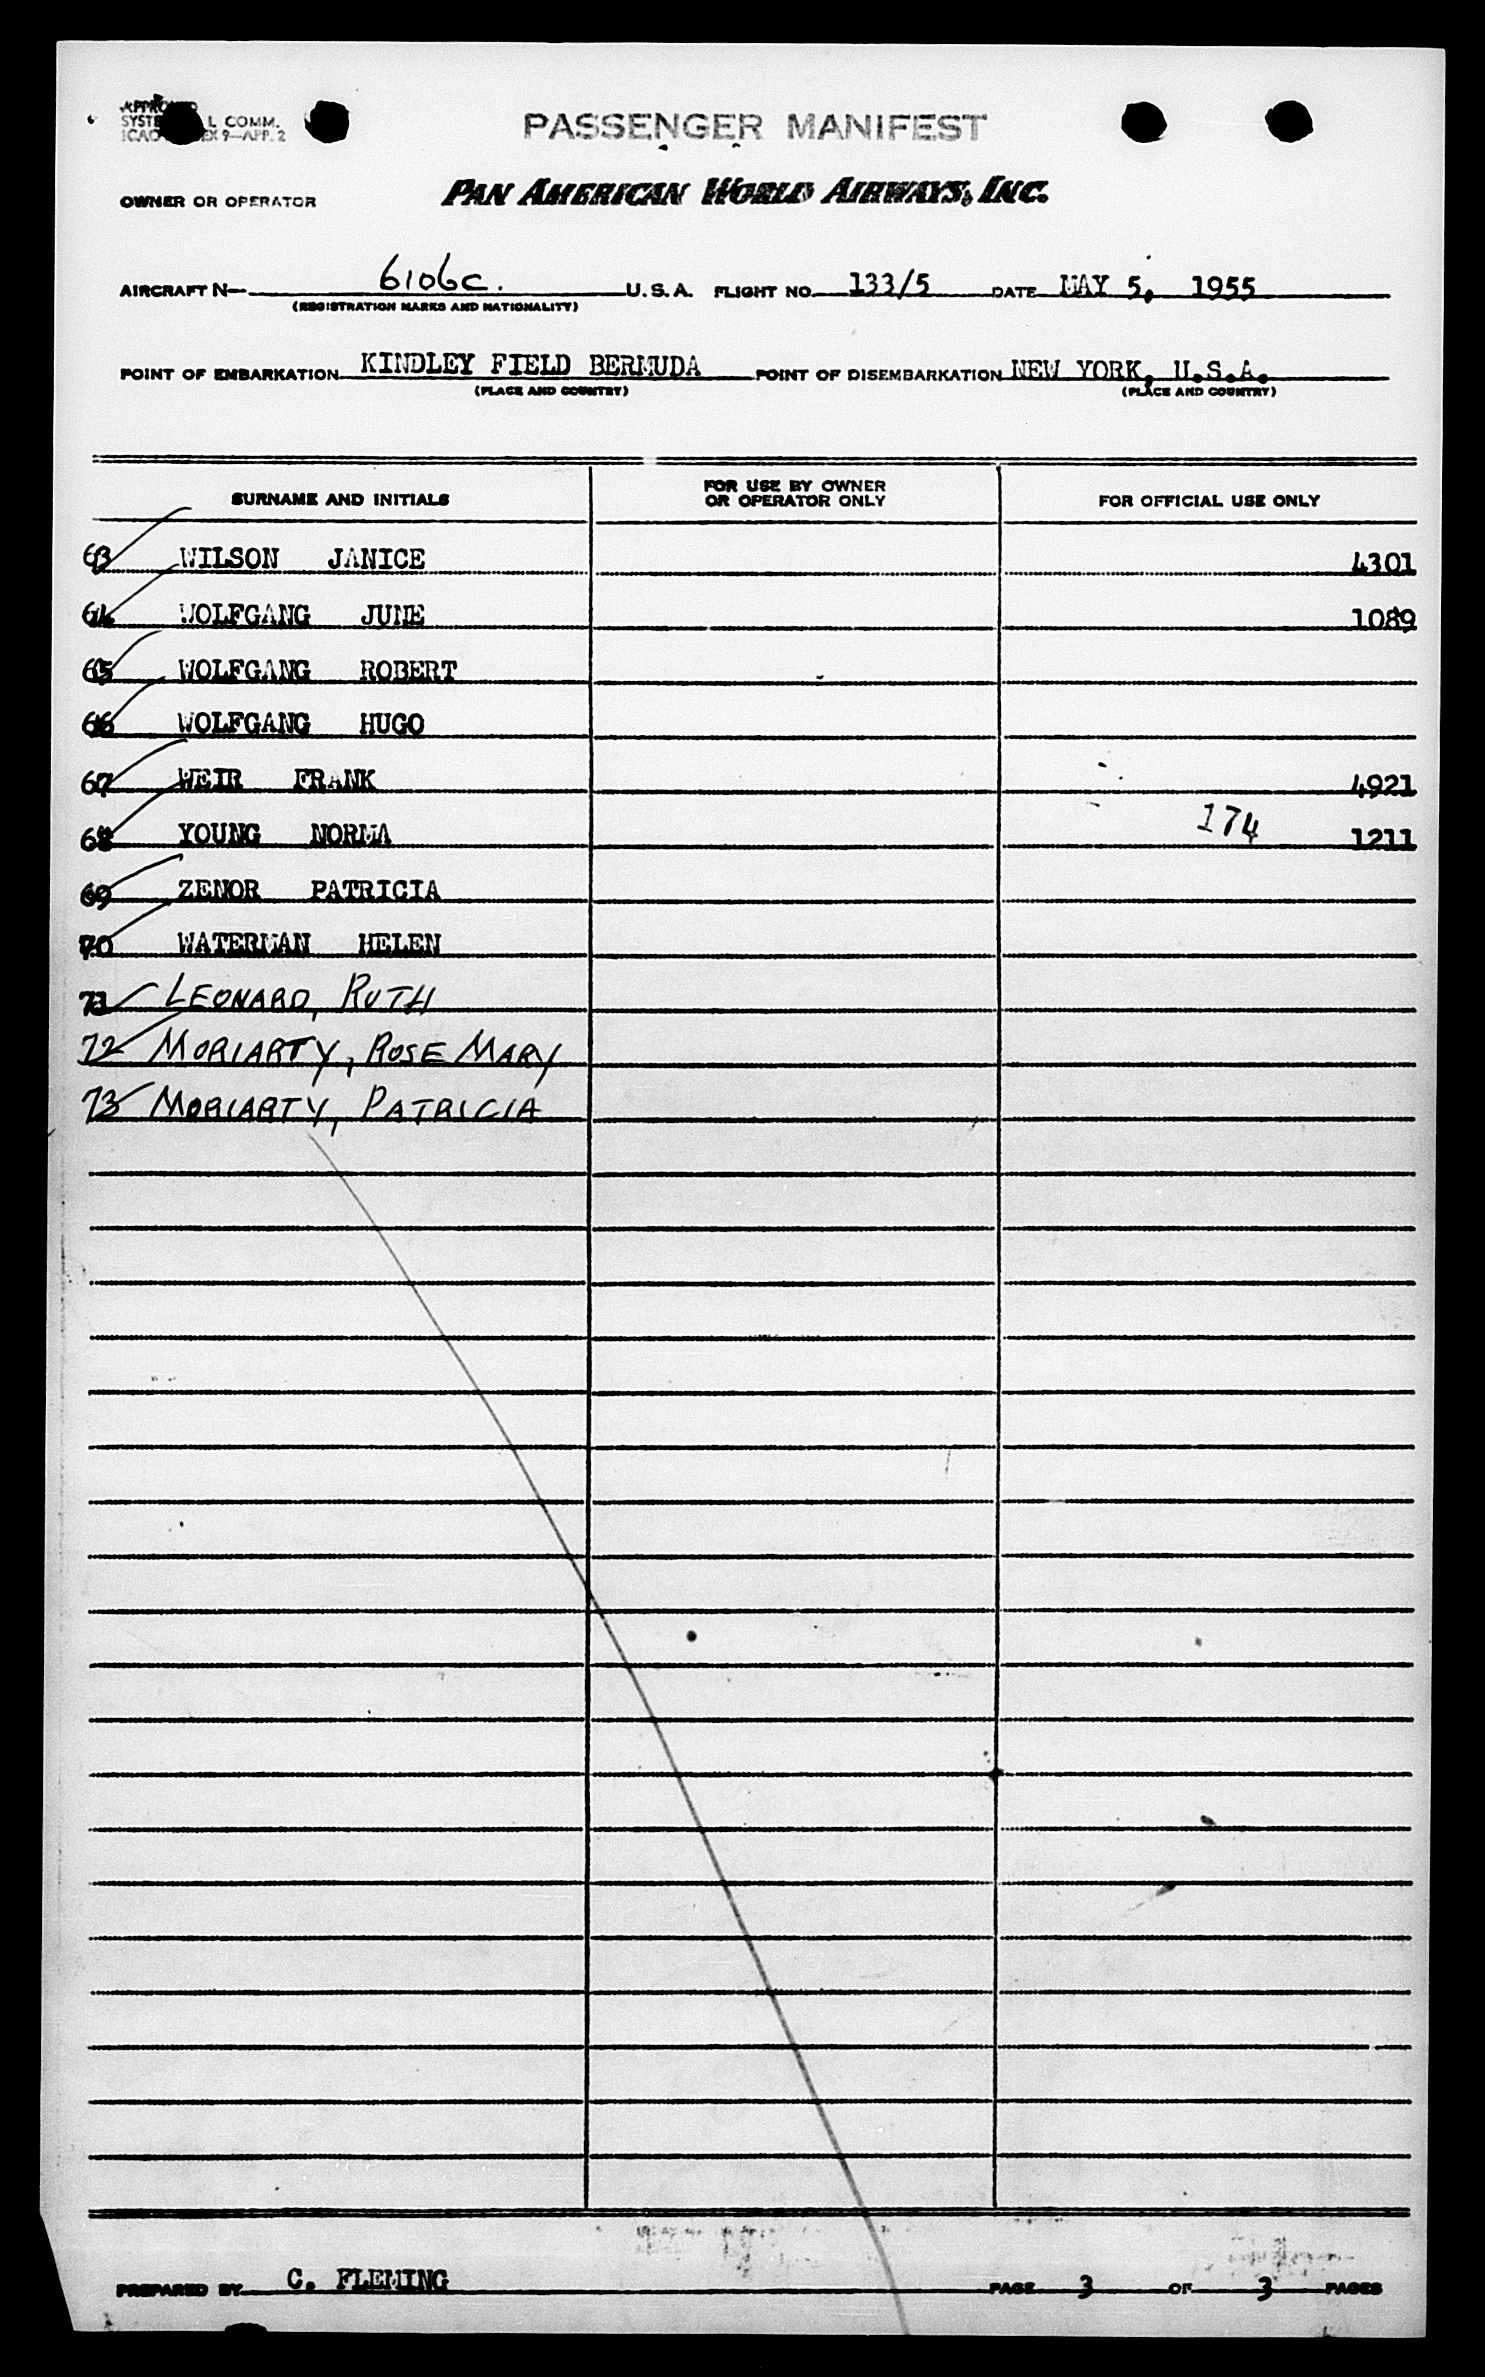 APPROVED
SYSTE L COMM.
ICAO EX 9—APP. 2
PASSENGER MANIFEST
OWNER OR OPERATOR PAN AMERICAN WORLD AIRWAYS, INC.
AIRCRAFT N— 6106C. U.S.A. FLIGHT NO. 133/5 DATE MAY 5, 1955
(REGISTRATION MARKS AND NATIONALITY)
POINT OF EMBARKATION KINDLEY FIELD BERMUDA POINT OF DISEMBARKATION NEW YORK, U.S.A.
(PLACE AND COUNTRY) (PLACE AND COUNTRY)
SURNAME AND INITIALS FOR USE BY OWNER OR OPERATOR ONLY FOR OFFICIAL USE ONLY
63 WILSON JANICE 4301
64 WOLFGANG JUNE 1089
65 WOLFGANG ROBERT
66 WOLFGANG HUGO
67 WEIR FRANK 4921
68 YOUNG NORMA 174 1211
69 ZENOR PATRICIA
70 WATERMAN HELEN
71 LEONARD, RUTH
72 MORIARTY, ROSE MARY
73 MORIARTY, PATRICIA
PREPARED BY C. FLEMING PAGE 3 OF 3 PAGES